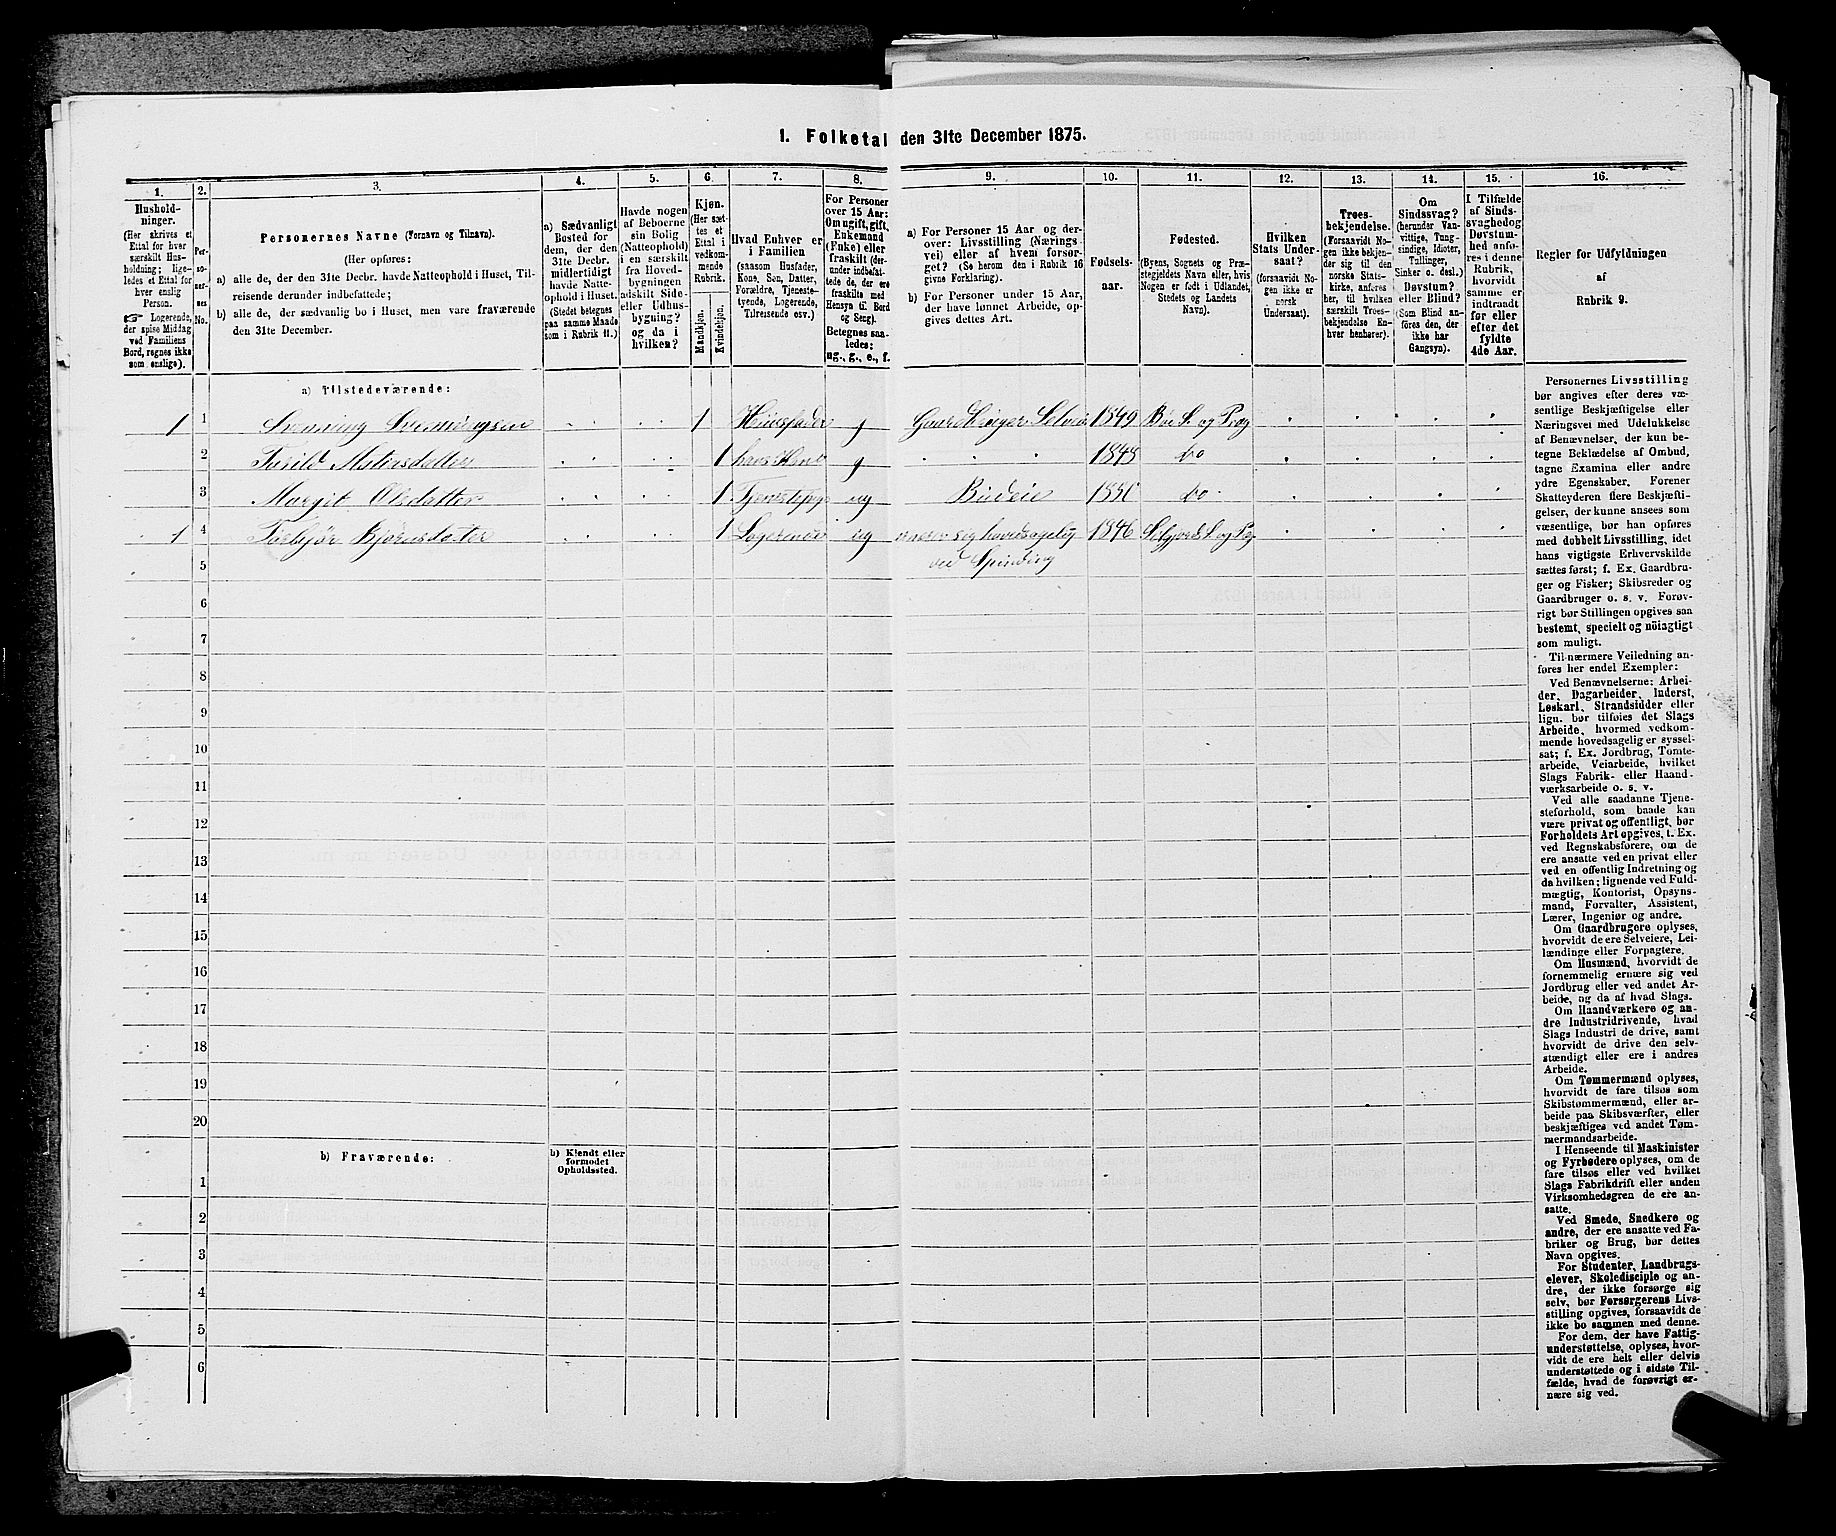 1. Folketal den 31te December 1875.
1.
2.
3.
4.
5.
6.
7.
8.
9.
10.
11.
12.
13.
14.
15.
16.
Hushold-
ninger.
(Her skrives et
Ettal for hver
særskilt Hus-
holdning; lige-
ledes et Ettal for
hver enslig
Person.
☞ Logerende,
der spise Middag
ved Familiens
Bord, regnes ikke
som enslige).
Per-
so-
ner-
nes
No.
Personernes Navne (Fornavn og Tilnavn).
(Her opføres:
a) alle de, der den 31te Decbr. havde Natteophold i Huset, Til-
reisende derunder indbefattede;
b) alle de, der sædvanlig bo i Huset, men vare fraværende
den 31te December.
a) Sædvanligt
Bosted for
dem, der den
31te Decbr.
midlertidigt
havde Natte-
ophold i Huset.
(Stedet betegnes
paa samme Maade
som i Rubrik 11.)
Havde nogen
af Beboerne
sin Bolig
(Natteophold)
i en særskilt
fra Hoved-
bygningen
adskilt Side-
eller Udhus-
bygning?
og da i
hvilken?
Kjøn.
(Her sæt-
tes et
Ettal i
vedkom-
mende
Rubrik.
Mandkjøn.
Kvindekjøn.
Hvad Enhver er
i Familien
(saasom Husfader,
Kone, Søn, Datter,
Forældre, Tjeneste-
tyende, Logerende,
Tilreisende osv.).
For Personer
over 15 Aar:
Om ugift, gift,
Enkemand
(Enke) eller
fraskilt (der-
under indbefat-
tede de, der ere
fraskilte med
Hensyn til Bord
og Seng).
Betegnes saa-
ledes:
ug., g., e., f.
a) For Personer 15 Aar og der-
over: Livsstilling (Nærings-
vei) eller af hveni forsør-
get? (Se herom den i Rubrik 16
givne Forklaring).
b) For Personer under 15 Aar,
der have lønnet Arbeide, op-
gives dettes Art.
Fødsels-
aar.
Fødested.
(Byens, Sognets og Præ-
stegjeldets Navn eller, hvis
Nogen er født i Udlandet,
Stedets og Landets
Navn).
Hvilken
Stats Under-
saat?
(forsaavidt No-
gen ikke er
norsk
Undersaat).
Troes-
bekjendelse.
(Forsaavidt No-
gen ikke bekjen-
der sig til den
norske Stats-
kirke, anføres
her, til hvilken
særskilt Troes-
bekjendelse En-
hver henhører).
Om
Sindssvag?
(herunder Van-
vittige, Tung-
sindige, Idioter,
Tullinger,
Sinker o. desl.)
Døvstum?
eller Blind?
(Som Blind an-
føres den, der
ikke har
Gangsyn).
I Tilfælde
af Sinds-
svaghed og
Døvstum-
hed anfø-
res i denne
Rubrik,
hvorvidt
samme er
indtraadt
før eller
efter det
fyldte
4de Aar.
Regler for Udfyldningen
af
Rubrik 9.
a) Tilstedeværende:
1 1 Svenning Svenningsen 1 Huusfader g Gaardbruger Selveier 1849 Bø S. og Præg
2 Turild Mathisdatter 1 hans Kone g 1848 do
3 Margit Olsdatter 1 Tjenestepige ug Budeie 1850 do
1 4 Torbjør Bjørnsdatter 1 Logerende ug ernærer sig hovedsagelig 1846
5 ved Spinding
6
7
8
9
10
11
12
13
14
15
16
17
18
19
20
b) Fraværende:
b) Kjendt eller
formodet
Opholdssted.
1
2
3
4
5
6
Personernes Livsstilling
bør angives efter deres væ-
sentlige Beskjæftigelse eller
Næringsvei med Udelukkelse
af Benævnelser, der kun be-
tegne Beklædelse af Ombud,
tagne Examina eller andre
ydre Egenskaber. Forener
Skatteyderen flere Beskjæfti-
gelser, der kunne ansees som
væsentlige, bør han opføres
med dobbelt Livsstilling, idet
hans vigtigste Erhvervskilde
sættes først; f. Ex. Gaardbru-
ger og Fisker; Skibsreder og
Gaardbruger o. s. v. Forøv-
rigt bør Stillingen opgives saa
bestemt, specielt og nøiagtigt
som muligt.
Til nærmere Veiledning an-
føres her endel Exempler:
Ved Benævnelserne: Arbei-
der, Dagarbeider, Inderst,
Løskarl, Strandsidder eller
lign. bør tilføies det Slags
Arbeide, hvormed vedkom-
mende hovedsagelig er syssel-
sat; f. Ex. Jordbrug, Tomte-
arbeide, Veiarbeide, hvilket
Slags Fabrik- eller Haand-
værksarbeide o. s. v.
Ved alle saadanne Tjene-
steforhold, som baade kan
være privat og offentligt, bør
Forholdets Art opgives, t. Ex.
ved Regnskabsførere, om de
ere ansatte ved en privat eller
ved en offentlig Indretning og
da hvilken; lignende ved Fuld-
mægtig, Kontorist, Opsyns-
mand, Forvalter, Assistent,
Lærer, Ingeniør og andre.
Om Gaardbrugere oplyses,
hvorvidt de ere Selveiere, Lei-
lændinge eller Forpagtere.
Om Husmænd, hvorvidt de
fornemmelig ernære sig ved
Jordbrug eller ved andet Ar-
beide, og da af hvad Slags.
Om Haandværkere og an-
dre Industridrivende, hvad
Slags Industri de drive, samt
hvorvidt de drive den selv-
stændigt eller ere i andres
Arbeide.
Om Tømmermænd oplyses,
hvorvidt de fare tilsøs som
Skibstømmermænd, eller ar-
beide paa Skibsværfter, eller
beskjæftiges ved andet Tøm-
mermandsarbeide.
I Henseende til Maskinister
og Fyrbødere oplyses, om de
fare tilsøs eller ved hvilket
Slags Fabrikdrift eller anden
Virksomhedsgren de ere an-
satte.
Ved Smede, Snedkere og
andre, der ere ansatte ved Fa-
briker og Brug, bør dettes
Navn opgives.
For Studenter, Landbrugs-
elever, Skoledisciple og an-
dre, der ikke forsørge sig
selv, bør Forsørgerens Livs-
stilling opgives, forsaavidt de
ikke bo sammen med denne.
For dem, der have Fattig-
understøttelse, oplyses, hvor-
vidt de ere helt eller delvis
understøttede og i sidste Til-
fælde, hvad de forøvrigt er-
nære sig ved.